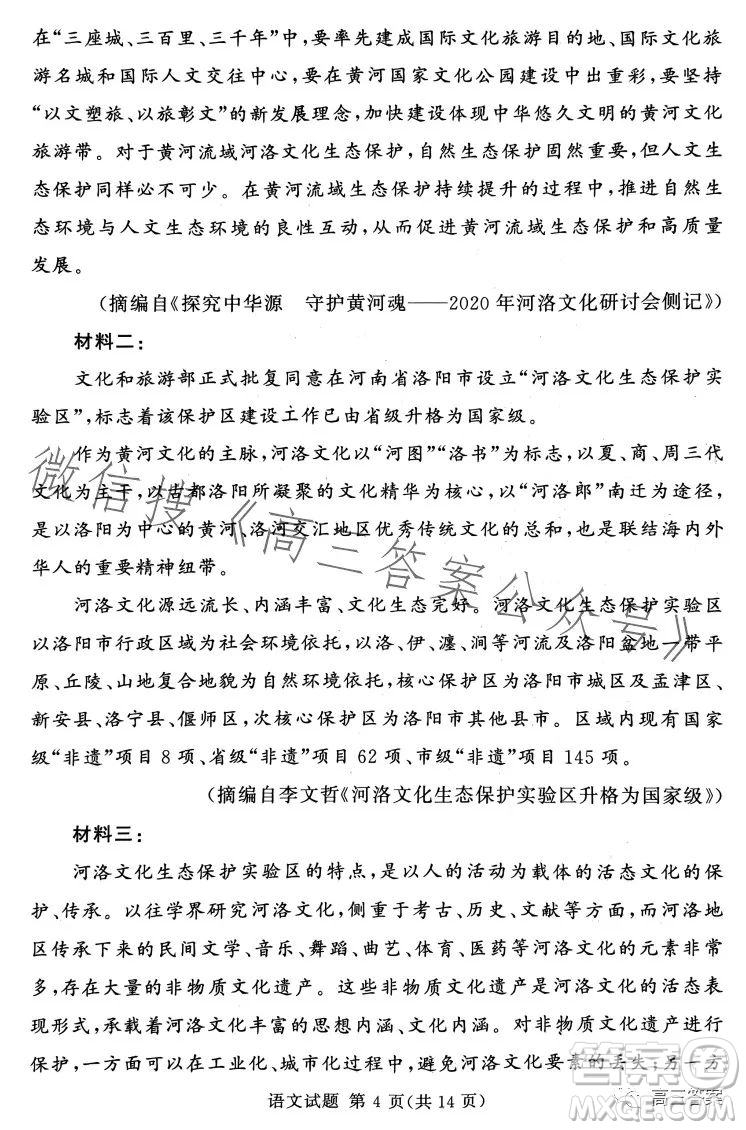 在“三座城、三百里、三千年”中,要率先建成国际文化旅游目的地、国际文化旅
游名城和国际人文交往中心,要在黄河国家文化公园建设中出重彩,要坚持
“以文塑旅、以旅彰文”的新发展理念,加快建设体现中华悠久文明的黄河文化
旅游带。对于黄河流域河洛文化生态保护,自然生态保护固然重要,但人文生
态保护同样必不可少。在黄河流域生态保护持续提升的过程中,推进自然生
态环境与人文生态环境的良性互动,从而促进黄河流域生态保护和高质量
发展。
(摘编自《探究中华源 守护黄河魂——2020年河洛文化研讨会侧记》)
材料二:
文化和旅游部正式批复同意在河南省洛阳市设立“河洛文化生态保护实
验区”,标志着该保护区建设工作已由省级升格为国家级。
作为黄河文化的主脉,河洛文化以“河图”“洛书”为标志,以夏、商、周三代
文化为主干,以古都洛阳所凝聚的文化精华为核心,以“河洛郎”南迁为途径,
是以洛阳为中心的黄河、洛河交汇地区优秀传统文化的总和,也是联结海内外
华人的重要精神纽带。
河洛文化源远流长、内涵丰富、文化生态完好。河洛文化生态保护实验区
以洛阳市行政区域为社会环境依托,以洛、伊、瀍、涧等河流及洛阳盆地一带平
原、丘陵、山地复合地貌为自然环境依托,核心保护区为洛阳市城区及孟津区、
新安县、洛宁县、偃师区,次核心保护区为洛阳市其他县市。区域内现有国家
级“非遗”项目8项、省级“非遗”项目62项、市级“非遗”项目145项。
(摘编自李文哲《河洛文化生态保护实验区升格为国家级》)
材料三:
河洛文化生态保护实验区的特点,是以人的活动为载体的活态文化的保
护、传承。以往学界研究河洛文化,侧重于考古、历史、文献等方面,而河洛地
区传承下来的民间文学、音乐、舞蹈、曲艺、体育、医药等河洛文化的元素非常
多,存在大量的非物质文化遗产。这些非物质文化遗产是河洛文化的活态表
现形式,承载着河洛文化丰富的思想内涵、文化内涵。对非物质文化遗产进行
保护,一方面可以在工业化、城市化过程中,避免河洛文化要素的丢失;另一方
语文试题 第4页(共14页)
微信搜《高三答案公众号》
答案圈
高三答案